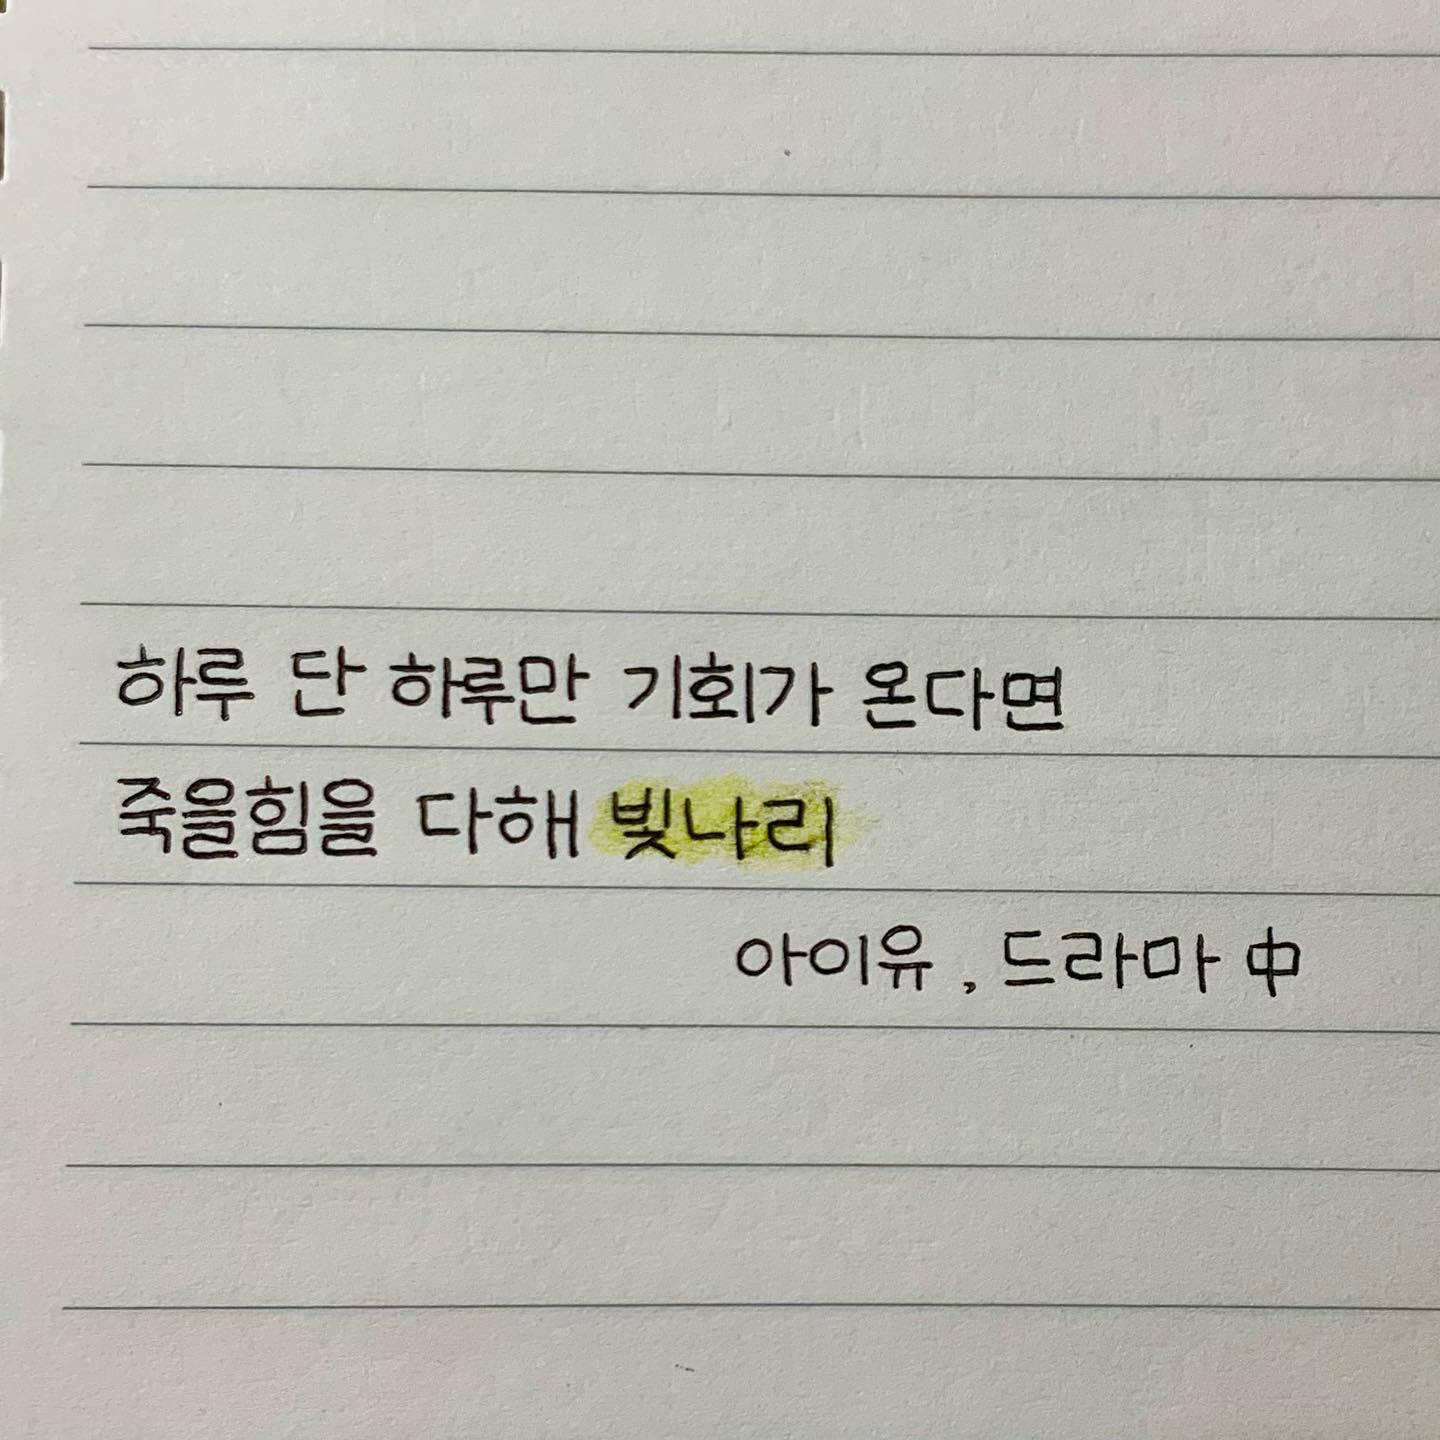 하루 단 하루만 기회가 온다면
죽을힘을 다해 빛나리
아이유, 드라마 中